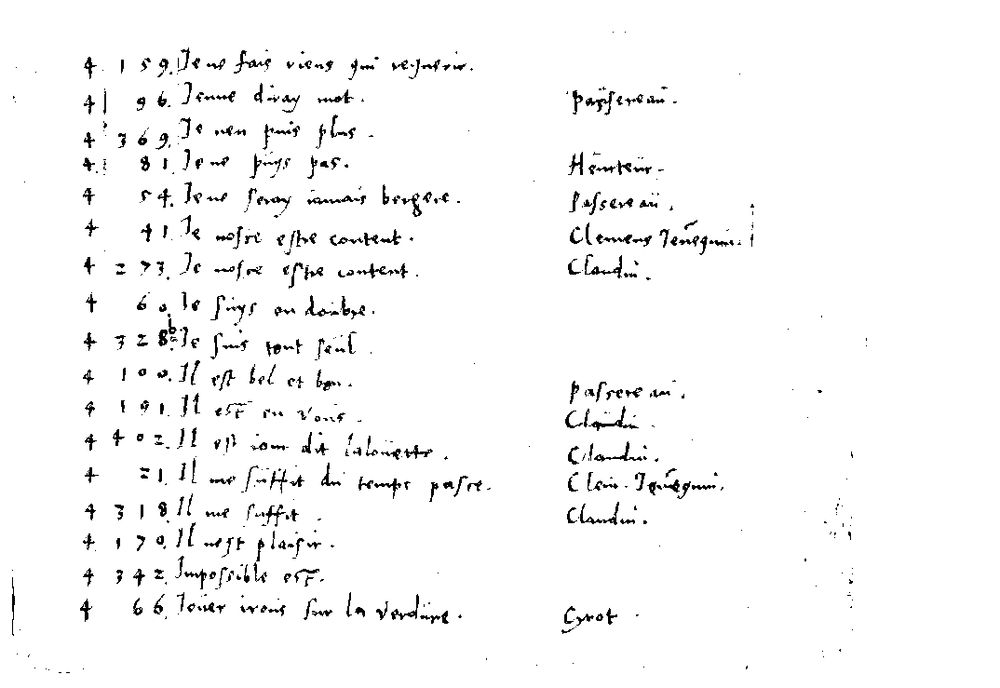 4 159. Je ne fais riens qui requerir.
4 96. Jenne diray mot. Passereau.
4 369. Je nen puis plus.
4 81. Je ne puys pas. Heurteur.
4 54. Je ne seray iamais bergere. Passereau.
4 41. Je nosre estre content. Clemens Jenequin.
4 273. Je nosre estre content. Claudin.
4 60. Je suys en doubte.
4 328. b Je suis tout seul.
4 100. Il est bel et bon. Passereau.
4 191. Il est en vous. Claudin.
4 402. Il est iour dit lalouette. Claudin.
4 21. Il me suffit du temps passe. Clem. Jenequin.
4 318 Il me suffit. Claudin.
4 170. Il nest plaisir.
4 342. Impossible est.
4 66. Jouer irons sur la verdure. Cyrot